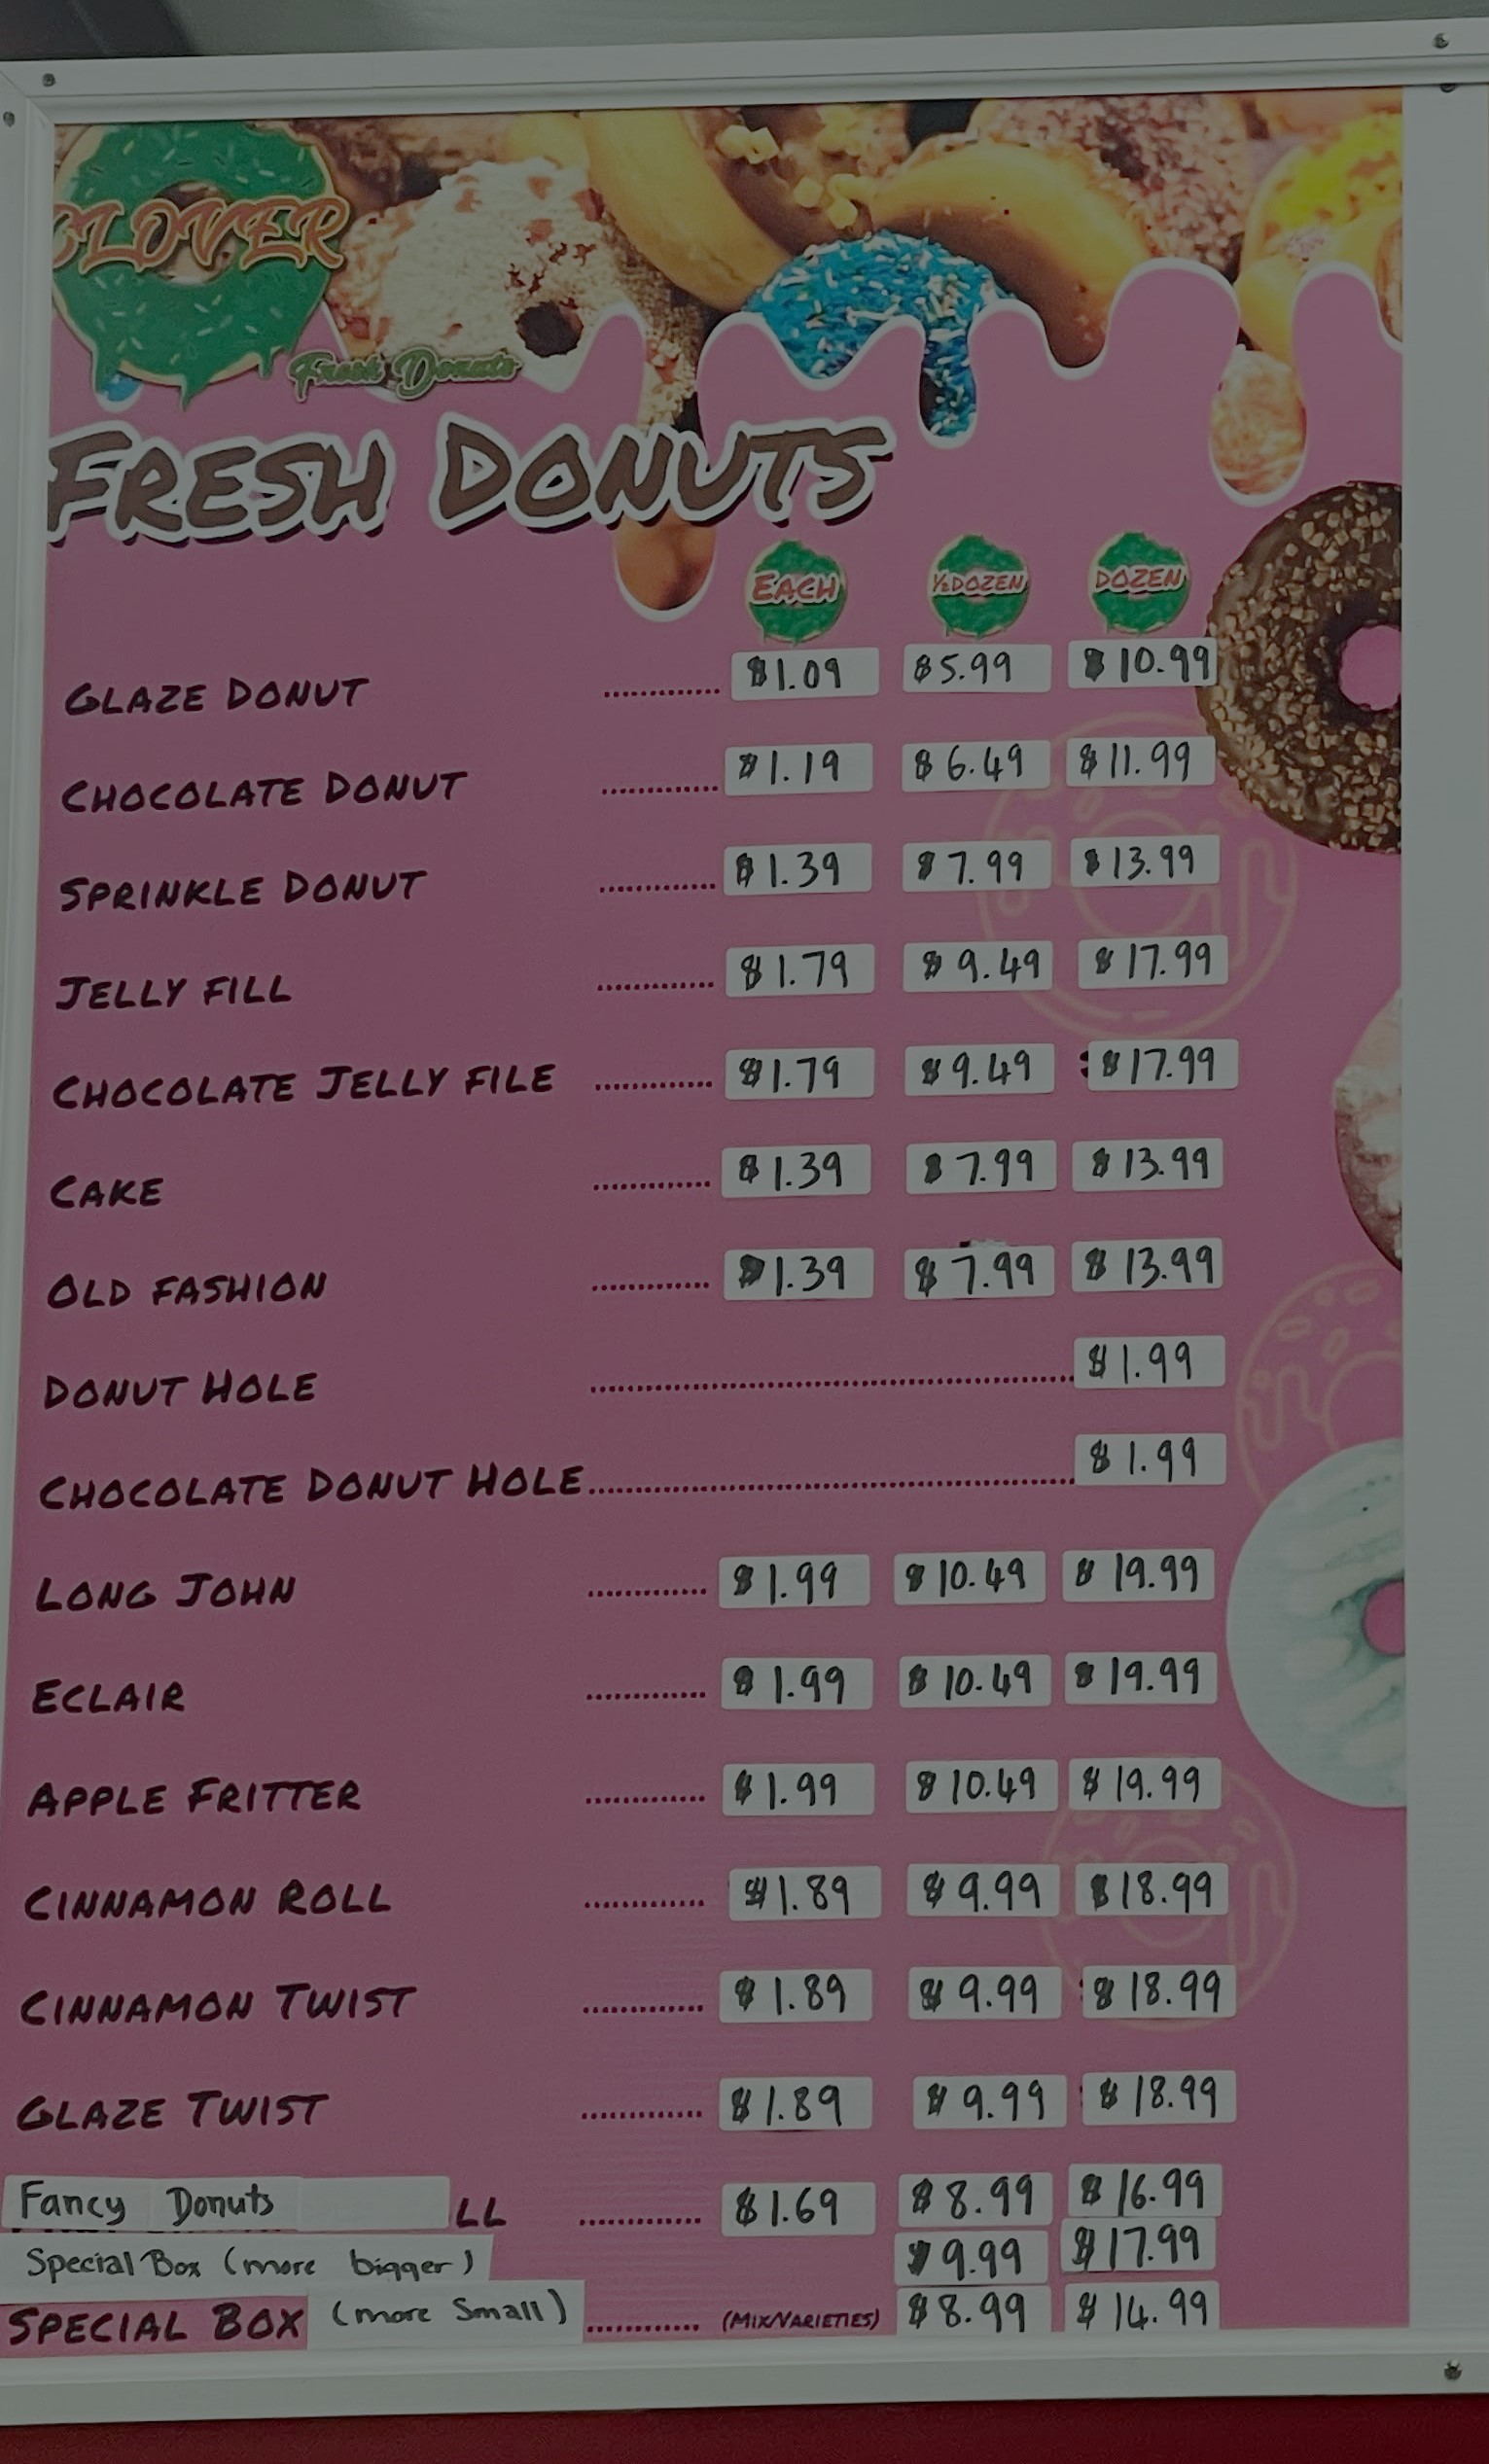 CLOVER
Fresh Donuts
FRESH DONUTS
EACH ½ DOZEN DOZEN
GLAZE DONUT ............ $1.09 $5.99 $10.99
CHOCOLATE DONUT ............ $1.19 $6.49 $11.99
SPRINKLE DONUT ............ $1.39 $7.99 $13.99
JELLY FILL ............ $1.79 $9.49 $17.99
CHOCOLATE JELLY FILE ............ $1.79 $9.49 $17.99
CAKE ............ $1.39 $7.99 $13.99
OLD FASHION ............ $1.39 $7.99 $13.99
DONUT HOLE ............ $1.99
CHOCOLATE DONUT HOLE ............ $1.99
LONG JOHN ............ $1.99 $10.49 $19.99
ECLAIR ............ $1.99 $10.49 $19.99
APPLE FRITTER ............ $1.99 $10.49 $19.99
CINNAMON ROLL ............ $1.89 $9.99 $18.99
CINNAMON TWIST ............ $1.89 $9.99 $18.99
GLAZE TWIST ............ $1.89 $9.99 $18.99
Fancy Donuts LL ............ $1.69 $8.99 $16.99
Special Box (more bigger) $9.99 $17.99
SPECIAL BOX (more Small) ............ (MIX/VARIETIES) $8.99 $14.99